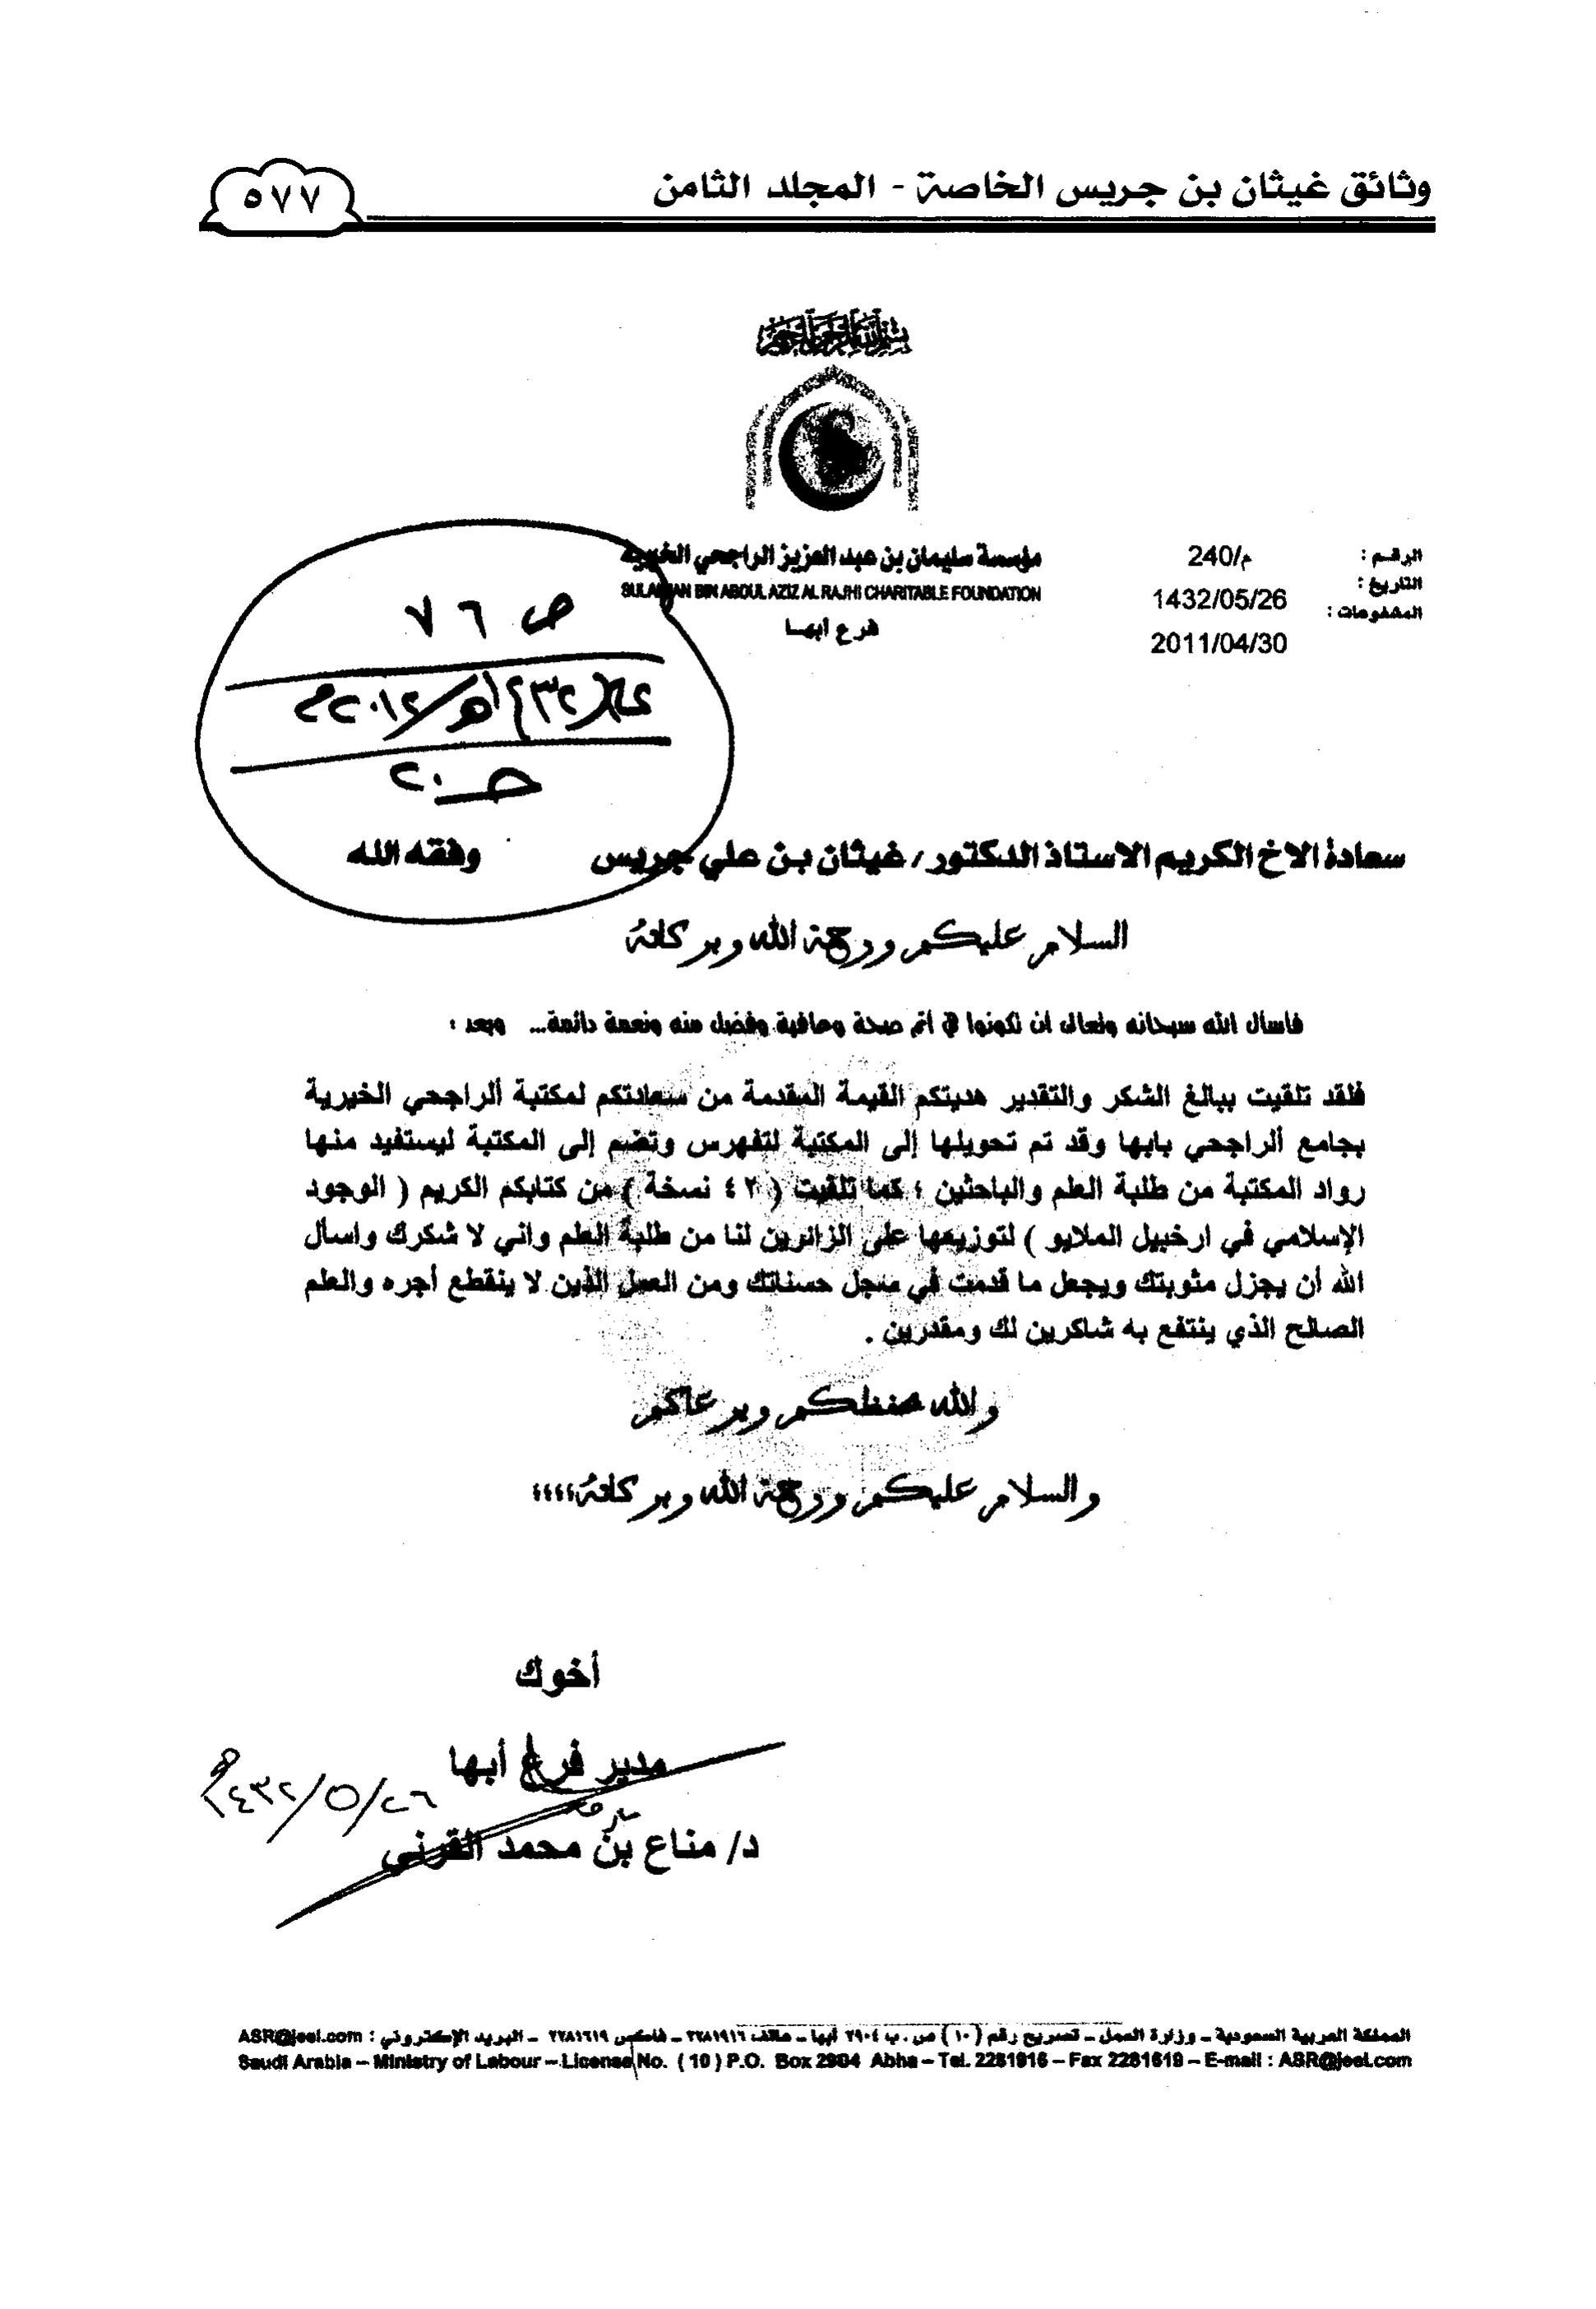 وثائق غيثان بن جريس الخاصة - المجلد الثامن
٥٧٧
بسم الله الرحمن الرحيم
مؤسسة سليمان بن عبد العزيز الراجحي الخيرية
SULAIMAN BIN ABDUL AZIZ AL RAJHI CHARITABLE FOUNDATION
فرع ابها
الرقم : م/240
التاريخ : 1432/05/26
المشفوعات :
2011/04/30
ص ٧٦
١٤٣٢هـ/٢٠١٢م
حـ ٢٠
سعادة الاخ الكريم الاستاذ الدكتور / غيثان بن علي جريس وفقه الله
السلام عليكم ورحمة الله وبركاته
فاسأل الله سبحانه وتعالى ان تكونوا في أتم صحة وعافية وفضل منه ونعمة دائمة... وبعد :
فلقد تلقيت ببالغ الشكر والتقدير هديتكم القيمة المقدمة من سعادتكم لمكتبة ألراجحي الخيرية
بجامع ألراجحي بابها وقد تم تحويلها إلى المكتبة لتفهرس وتضم إلى المكتبة ليستفيد منها
رواد المكتبة من طلبة العلم والباحثين ؛ كما تلقيت ( ٤٢ نسخة ) من كتابكم الكريم ( الوجود
الإسلامي في ارخبيل الملايو ) لتوزيعها على الزائرين لنا من طلبة العلم واني لا شكرك واسأل
الله أن يجزل مثوبتك ويجعل ما قدمت في سجل حسناتك ومن العمل الذين لا ينقطع أجره والعلم
الصالح الذي ينتفع به شاكرين لك ومقدرين .
والله يحفظكم ويرعاكم
والسلام عليكم ورحمة الله وبركاته؛؛؛؛
أخوك
مدير فرع أبها
١٤٣٢/٥/٢٦
د/ مناع بن محمد القرني
المملكة العربية السعودية – وزارة العمل – تصريح رقم (١٠) ص . ب ٢٩٠٤ أبها – هاتف ٢٢٨١٩١٦ – فاكس ٢٢٨١٦١٩ – البريد الإلكتروني : ASR@jeel.com
Saudi Arabia – Ministry of Labour – License No. ( 10 ) P.O. Box 2904 Abha – Tel. 2281916 – Fax 2281619 – E-mail : ASR@jeel.com